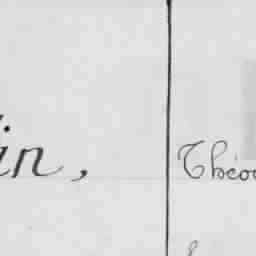 in,
Théo